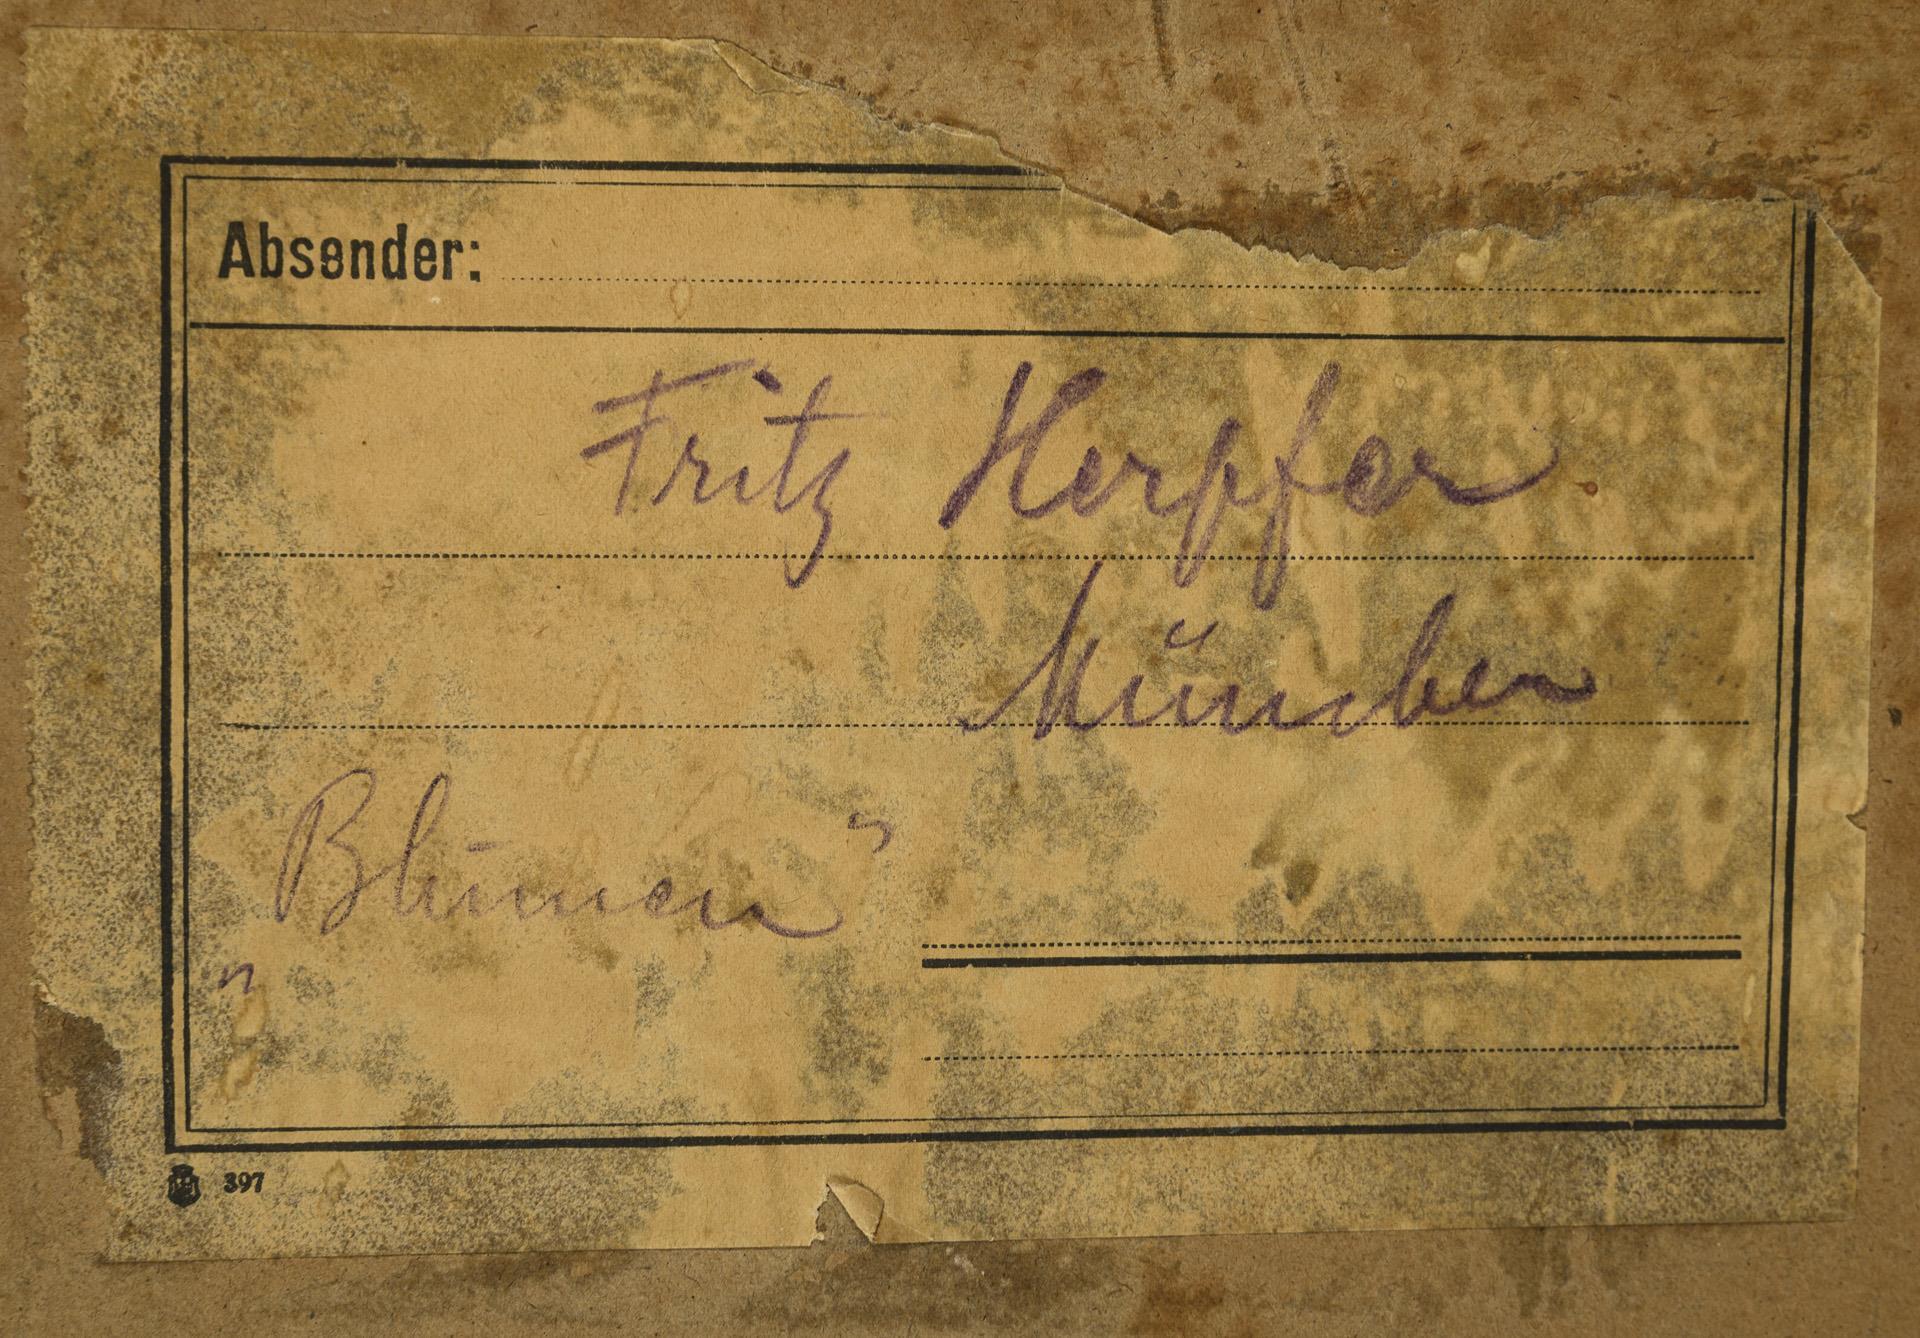 Absender:
Fritz Herpfer
München
„Blumen“
397